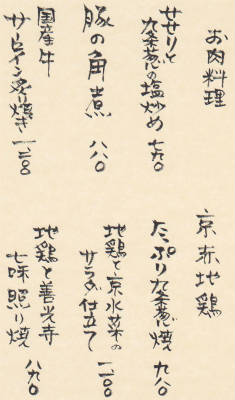 お肉料理
せせりと
九条葱の塩炒め 七九〇
豚の角煮 八八〇
国産牛
サーロイン炙り焼き 一二〇〇
京赤地鶏
たっぷり九条葱焼 九八〇
地鶏と京水菜の
サラダ仕立て 一二〇〇
地鶏と善光寺
七味照り焼 八九〇